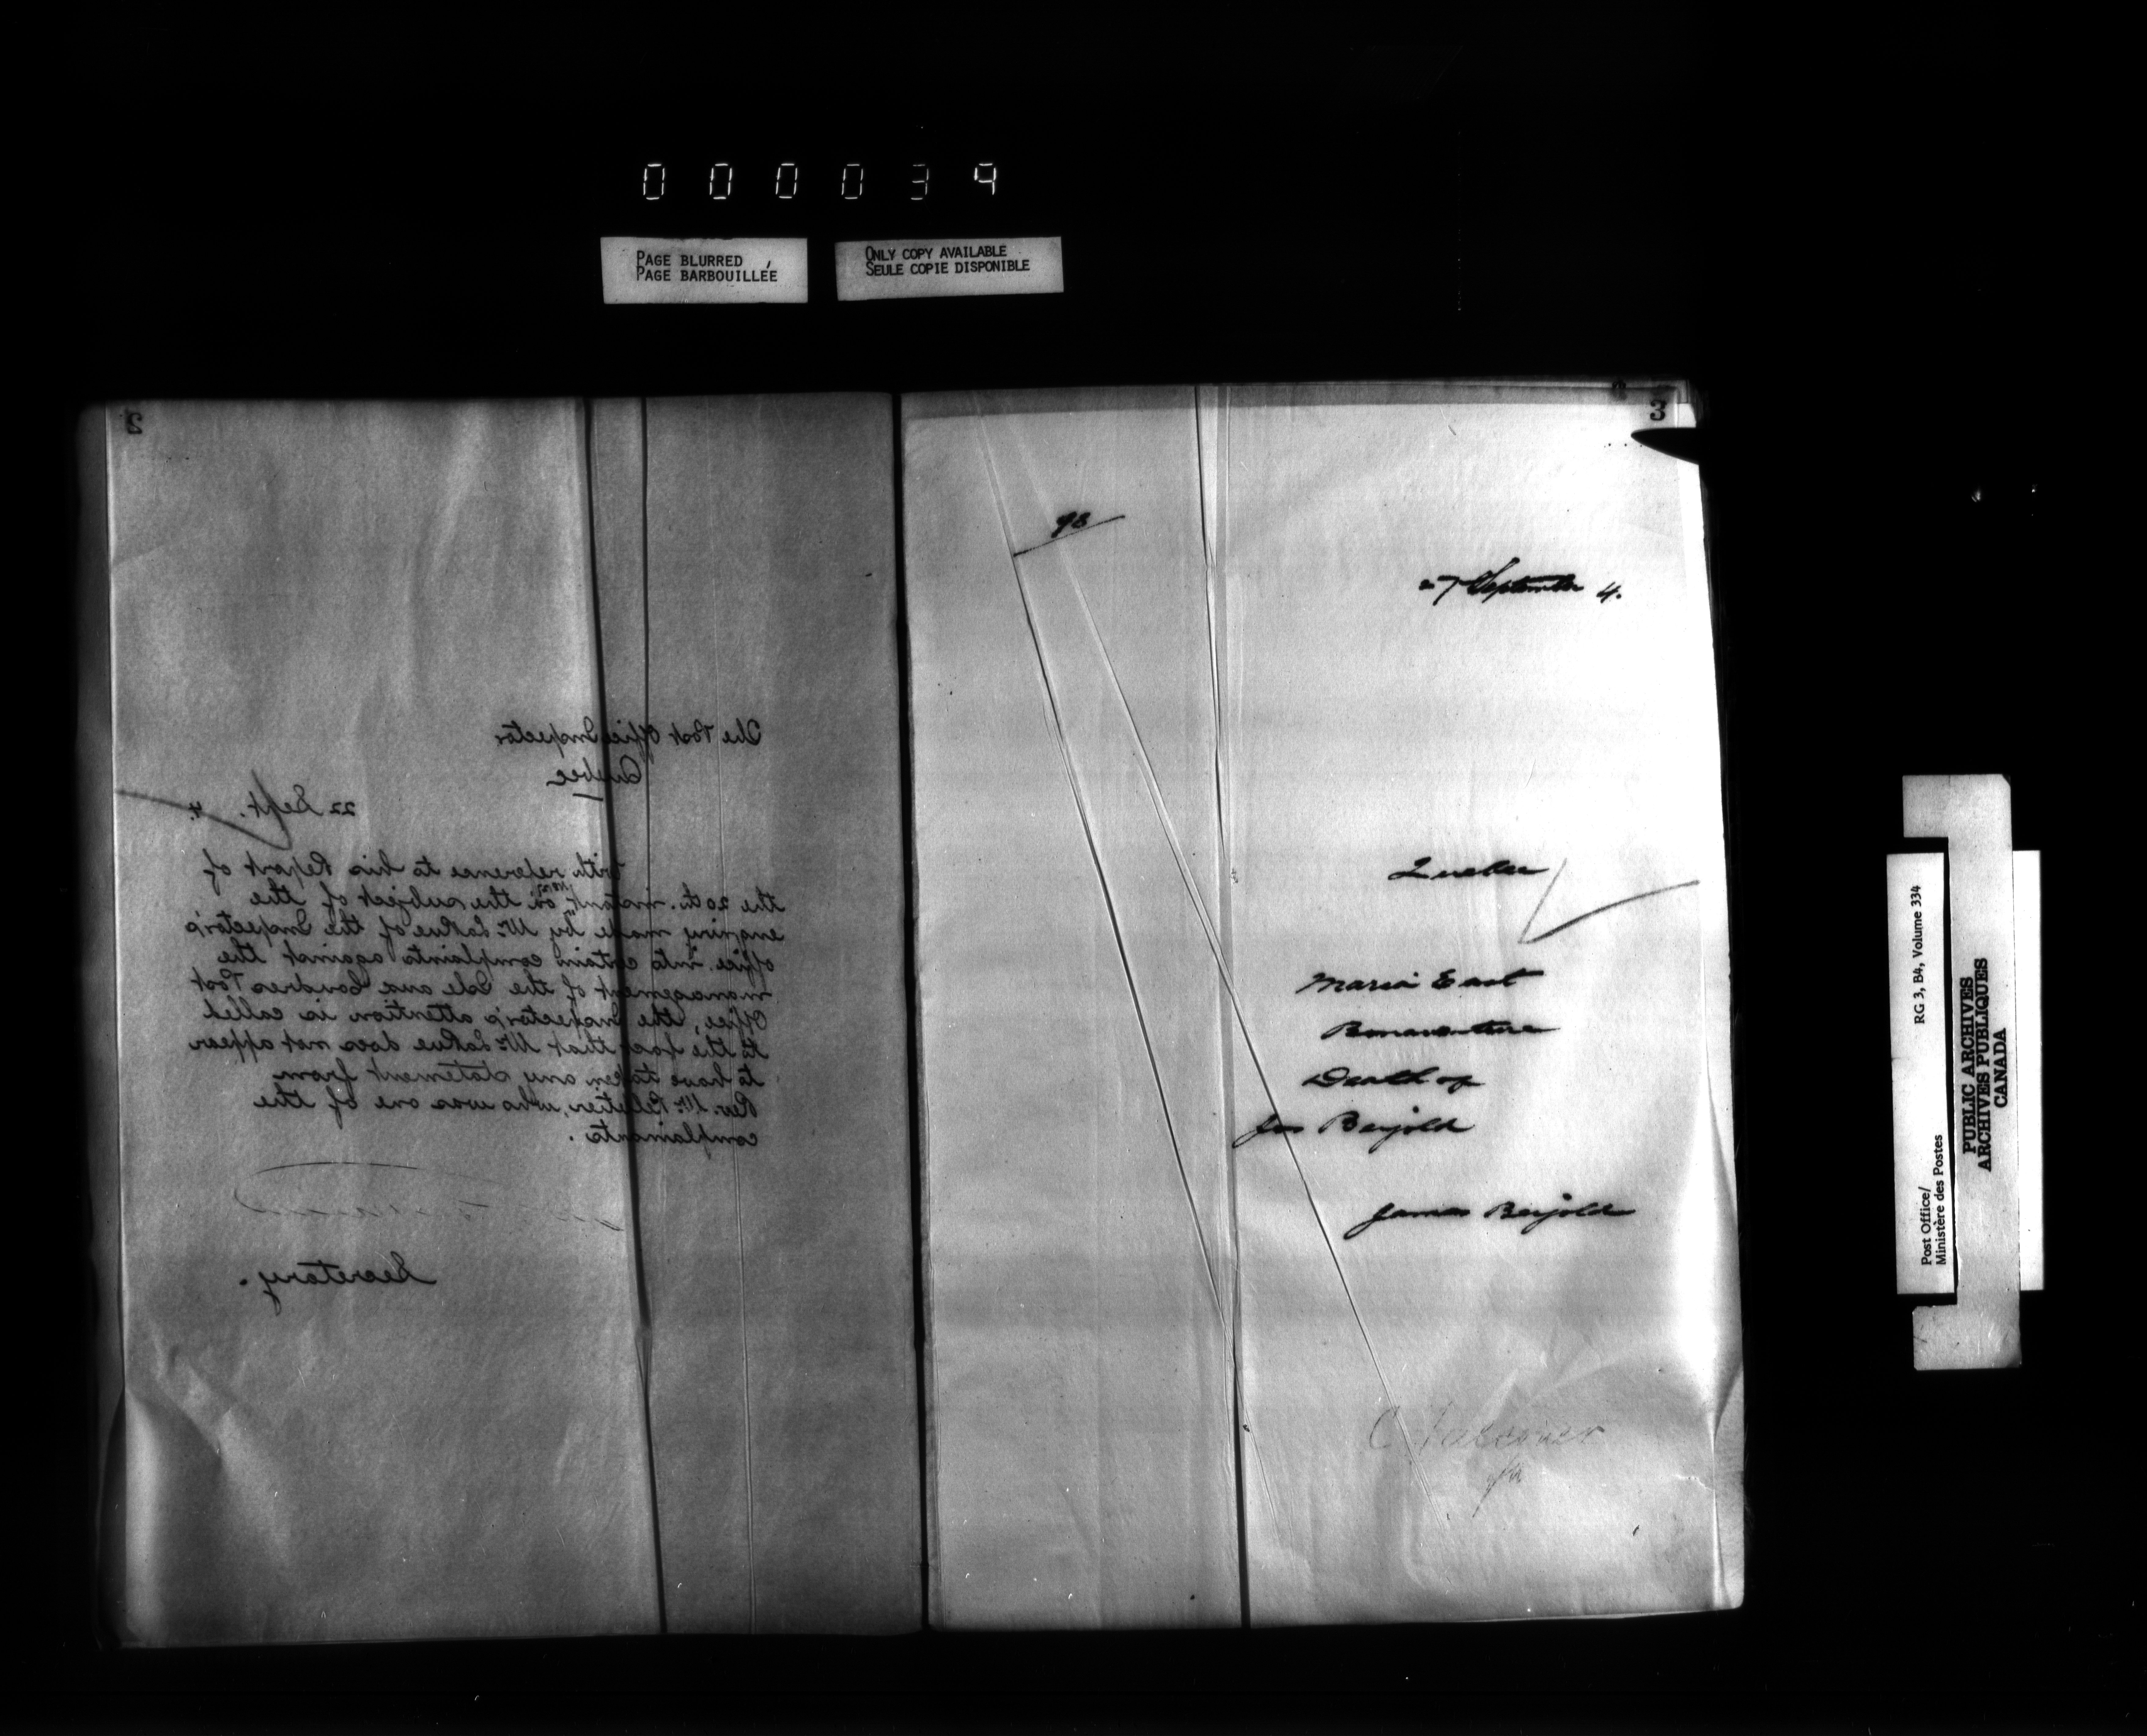 000034
PAGE BLURRED
PAGE BARBOUILLÉE
ONLY COPY AVAILABLE
SEULE COPIE DISPONIBLE
2
The Post Office Inspector
Quebec
22 Sept. 4.
With reference to his Report of
the 20th. instant, on the subject of the
enquiry made by Mr. LaRue of the Inspector's
office, into certain complaints against the
management of the Isle aux Coudres Post
Office, the Inspector's attention is called
to the fact that Mr. LaRue does not appear
to have taken any statement from
Rev. Mr. Pelletier, who was one of the
complainants.
Secretary.
3
98
27 September 4.
Quebec
Maria East
Bonaventure
Death of
Jas Beijold
James Beijold
Post Office/
Ministère des Postes
RG 3, B4, Volume 334
PUBLIC ARCHIVES
ARCHIVES PUBLIQUES
CANADA